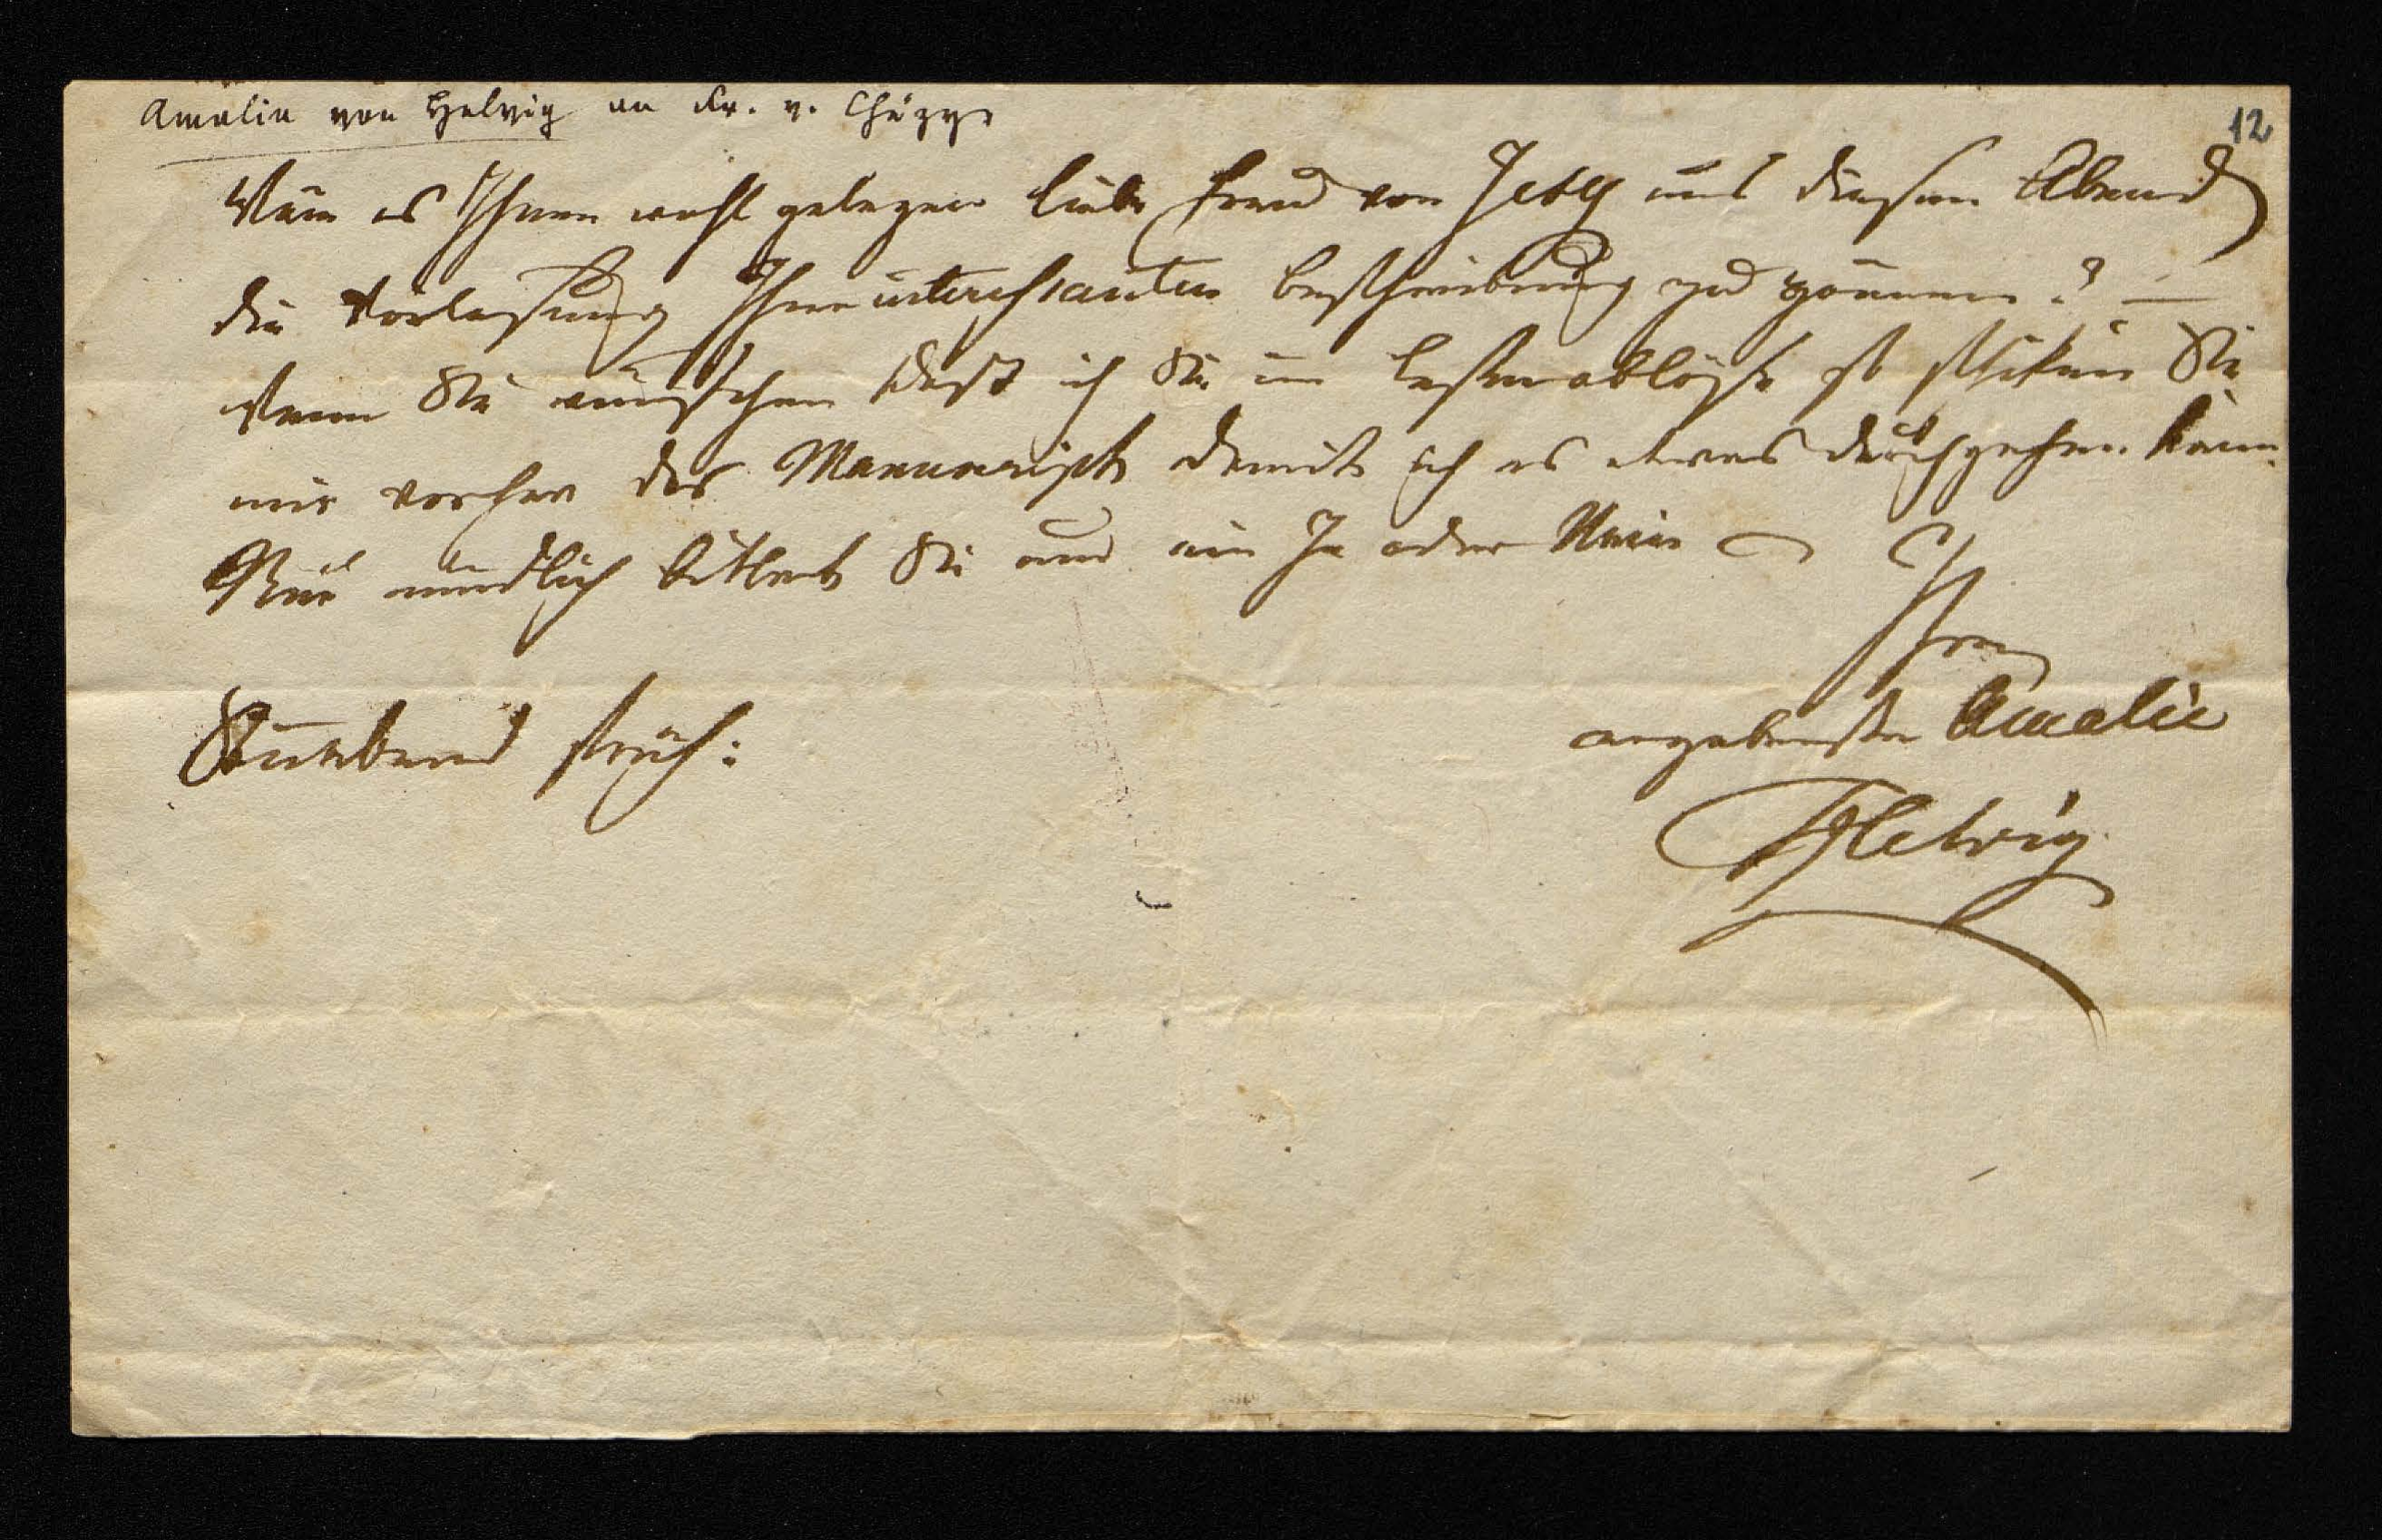 Amalia von Helvig an Fr. v. Chézy
12
Wäre es Ihnen wohl gelegen liebe Frau von Chezy uns diesen Abend
die Vorlesung Ihrer interessanten Beschreibung zu gönnen? —
Wenn Sie wünschen daß ich Sie im Lesen ablöse so schiken Sie
mir vorher das Manuscript damit ich es etwas durchgehen kann.
Nur mündlich bittend Sie um ein Ja oder Nein
Ihre
ergebenste Amalie
Helvig
Sonnabend früh: